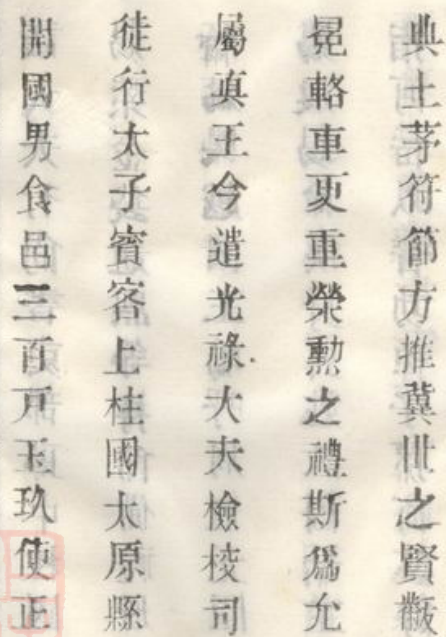 典土茅符節方推冀世之賢黻
冕輅車更重榮勲之禮斯爲允
屬真王今遣光祿大夫檢校司
徒行太子賓客上柱國太原縣
開國男食邑三百戸王玖使正